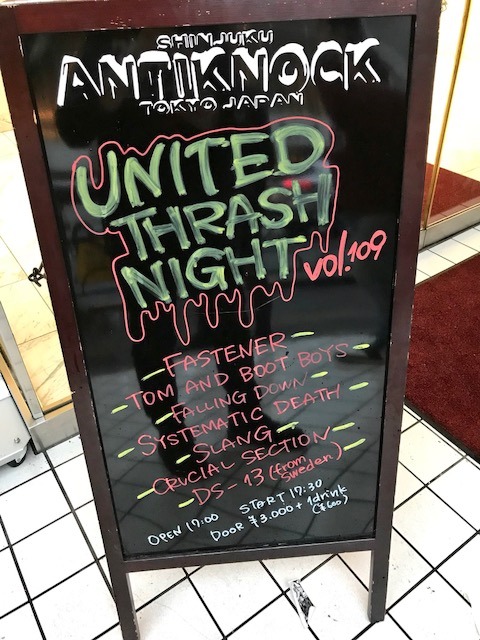 SHINJUKU
ANTIKNOCK
TOKYO JAPAN
UNITED
THRASH
NIGHT vol.109
- FASTENER -
- TOM AND BOOT BOYS -
- FALLING DOWN -
- SYSTEMATIC DEATH -
- SLANG -
- CRUCIAL SECTION -
- DS-13 (from Sweden) -
OPEN 17:00 START 17:30
DOOR ¥3.000 + 1drink (¥600)